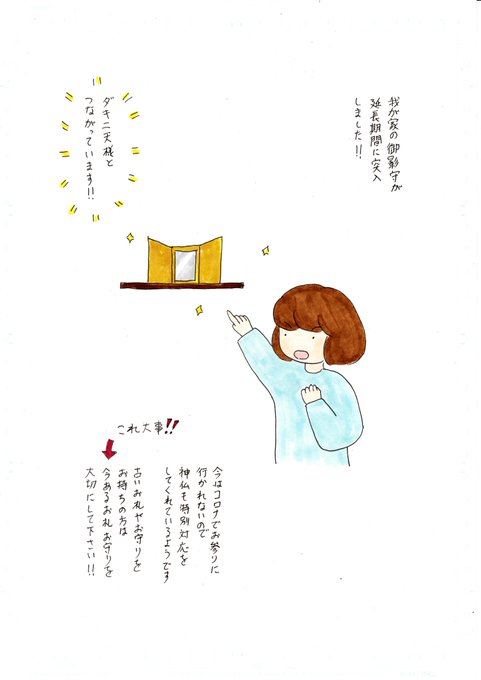 我が家の御影守が
延長期間に突入
しました!!
ダキニ天様と
つながっています!!
これ大事!!
今はコロナでお参りに
行かれないので
神仏も特別対応を
してくれているようです
古いお札やお守りを
お持ちの方は
今あるお札お守りを
大切にして下さい!!